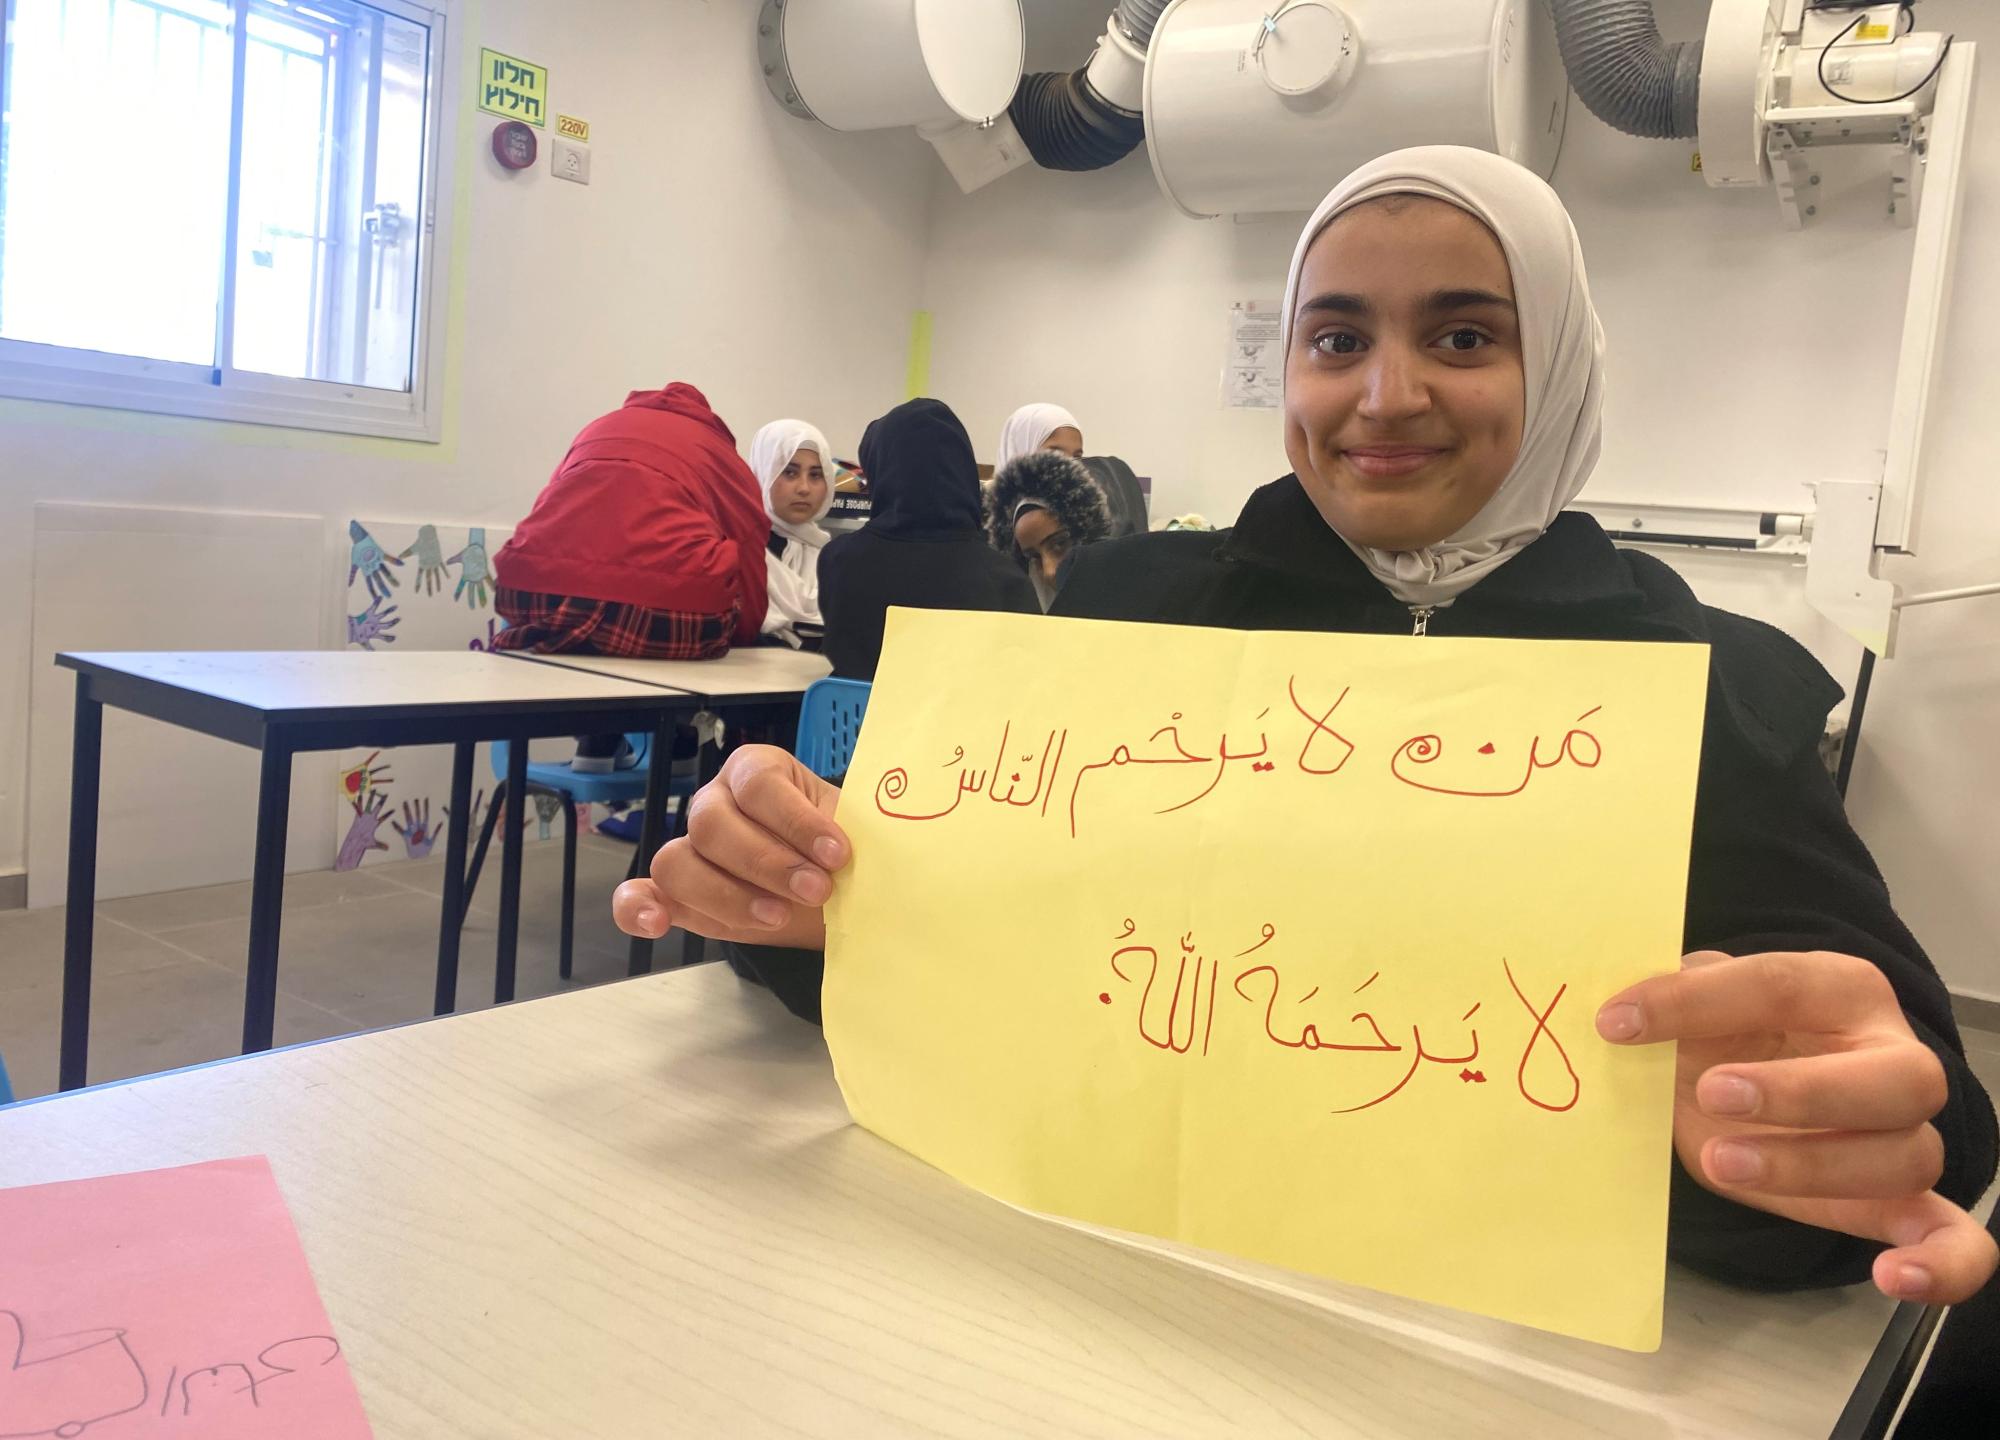 חלון
חילוץ
220V
PURPOSE PAP
مَن لا يَرحْم النّاسُ
لا يَرحَمَهُ اللّٰهُ.